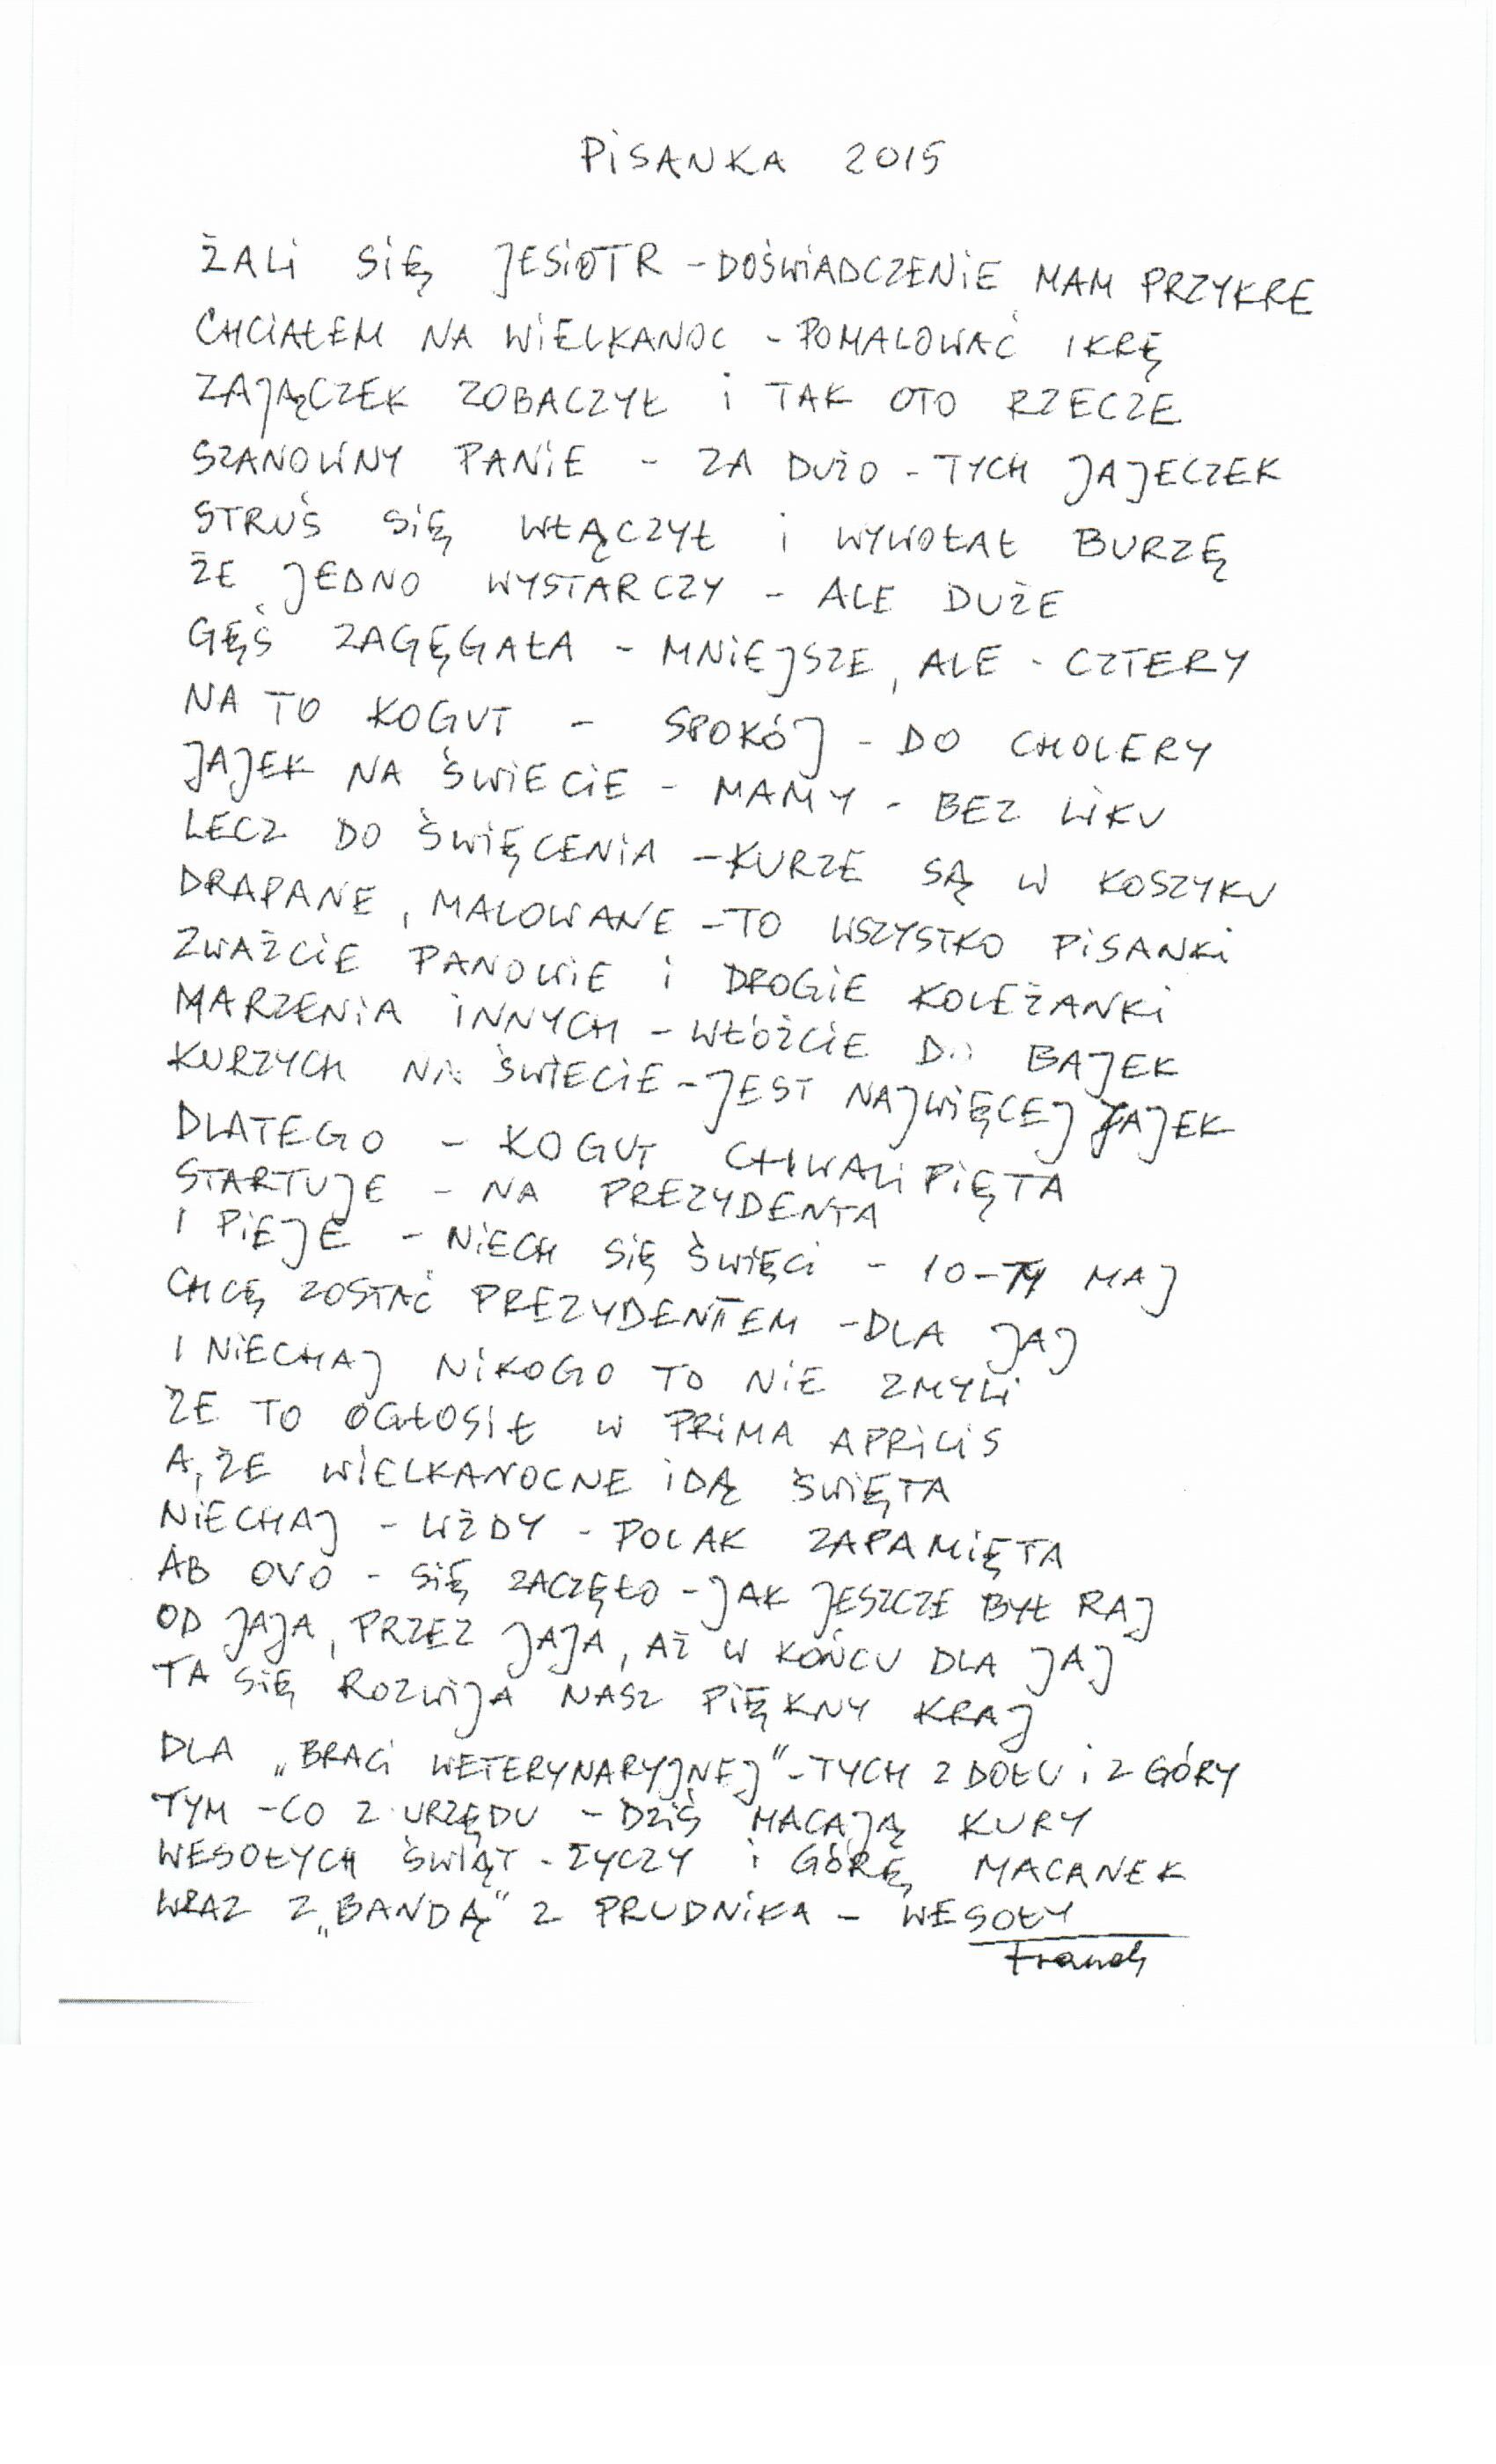 PISANKA 2015
ŻALI SIĘ JESIOTR - DOŚWIADCZENIE MAM PRZYKRE
CHCIAŁEM NA WIELKANOC - POMALOWAĆ IKRĘ
ZAJĄCZEK ZOBACZYŁ I TAK OTO RZECZE
SZANOWNY PANIE - ZA DUŻO - TYCH JAJECZEK
STRUŚ SIĘ WŁĄCZYŁ I WYWOŁAŁ BURZĘ
ŻE JEDNO WYSTARCZY - ALE DUŻE
GĘŚ ZAGĘGAŁA - MNIEJSZE, ALE - CZTERY
NA TO KOGUT - SPOKÓJ - DO CHOLERY
JAJEK NA ŚWIECIE - MAMY - BEZ LIKU
LECZ DO ŚWIĘCENIA - KURZE SĄ W KOSZYKU
DRAPANE, MALOWANE - TO WSZYSTKO PISANKI
ZWAŻCIE PANOWIE I DROGIE KOLEŻANKI
MARZENIA INNYCH - WŁÓŻCIE DO BAJEK
KURZYCH NA ŚWIECIE - JEST NAJWIĘCEJ JAJEK
DLATEGO - KOGUT CHWALIPIĘTA
STARTUJE - NA PREZYDENTA
I PIEJE - NIECH SIĘ ŚWIĘCI - 10-TY MAJ
CHCĘ ZOSTAĆ PREZYDENTEM - DLA JAJ
I NIECHAJ NIKOGO TO NIE ZMYLI
ŻE TO OGŁOSIŁ W PRIMA APRILIS
A, ŻE WIELKANOCNE IDĄ ŚWIĘTA
NIECHAJ - WŻDY - POLAK ZAPAMIĘTA
AB OVO - SIĘ ZACZĘŁO - JAK JESZCZE BYŁ RAJ
OD JAJA, PRZEZ JAJA, AŻ W KOŃCU DLA JAJ
TA SIĘ ROZWIJA NASZ PIĘKNY KRAJ
DLA „BRACI WETERYNARYJNEJ" - TYCH Z DOŁU I Z GÓRY
TYM - CO Z URZĘDU - DZIŚ MACAJĄ KURY
WESOŁYCH ŚWIĄT - ŻYCZY I GÓRĘ MACANEK
WRAZ Z „BANDĄ" Z PRUDNIKA - WESOŁY